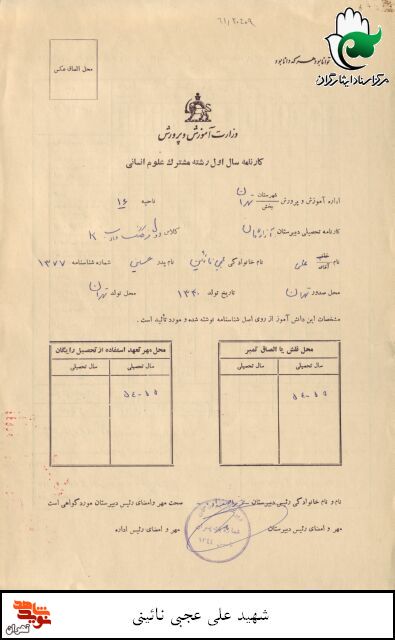 ۶۱/۲۰۲۰۹
توانا بود هر که دانا بود
مرکز اسناد ایثارگران
محل الصاق عکس
وزارت آموزش و پرورش
کارنامه سال اول رشته مشترک علوم انسانی
اداره آموزش و پرورش شهرستان بخش تهران ناحیه ۱۶
کارنامه تحصیلی دبیرستان کلاس اول فرهنگ و ادب
نام آقای علی نام خانوادگی عجبی نائینی نام پدر حسین شماره شناسنامه ۱۳۷۷
محل صدور تهران تاریخ تولد ۱۳۴۰ محل تولد تهران
مشخصات این دانش آموز از روی اصل شناسنامه نوشته شده و مورد تأئید است.
محل نقش یا الصاق تمبر
سال تحصیلی سال تحصیلی
۵۴-۵۵
محل مهر تعهد استفاده از تحصیل رایگان
سال تحصیلی سال تحصیلی
۵۴-۵۵
نام و نام خانوادگی رئیس دبیرستان
صحت مهر و امضای رئیس دبیرستان مورد گواهی است
مهر و امضای رئیس دبیرستان
مهر و امضای رئیس اداره
شهید علی عجبی نائینی
نوید شاهد
تهران